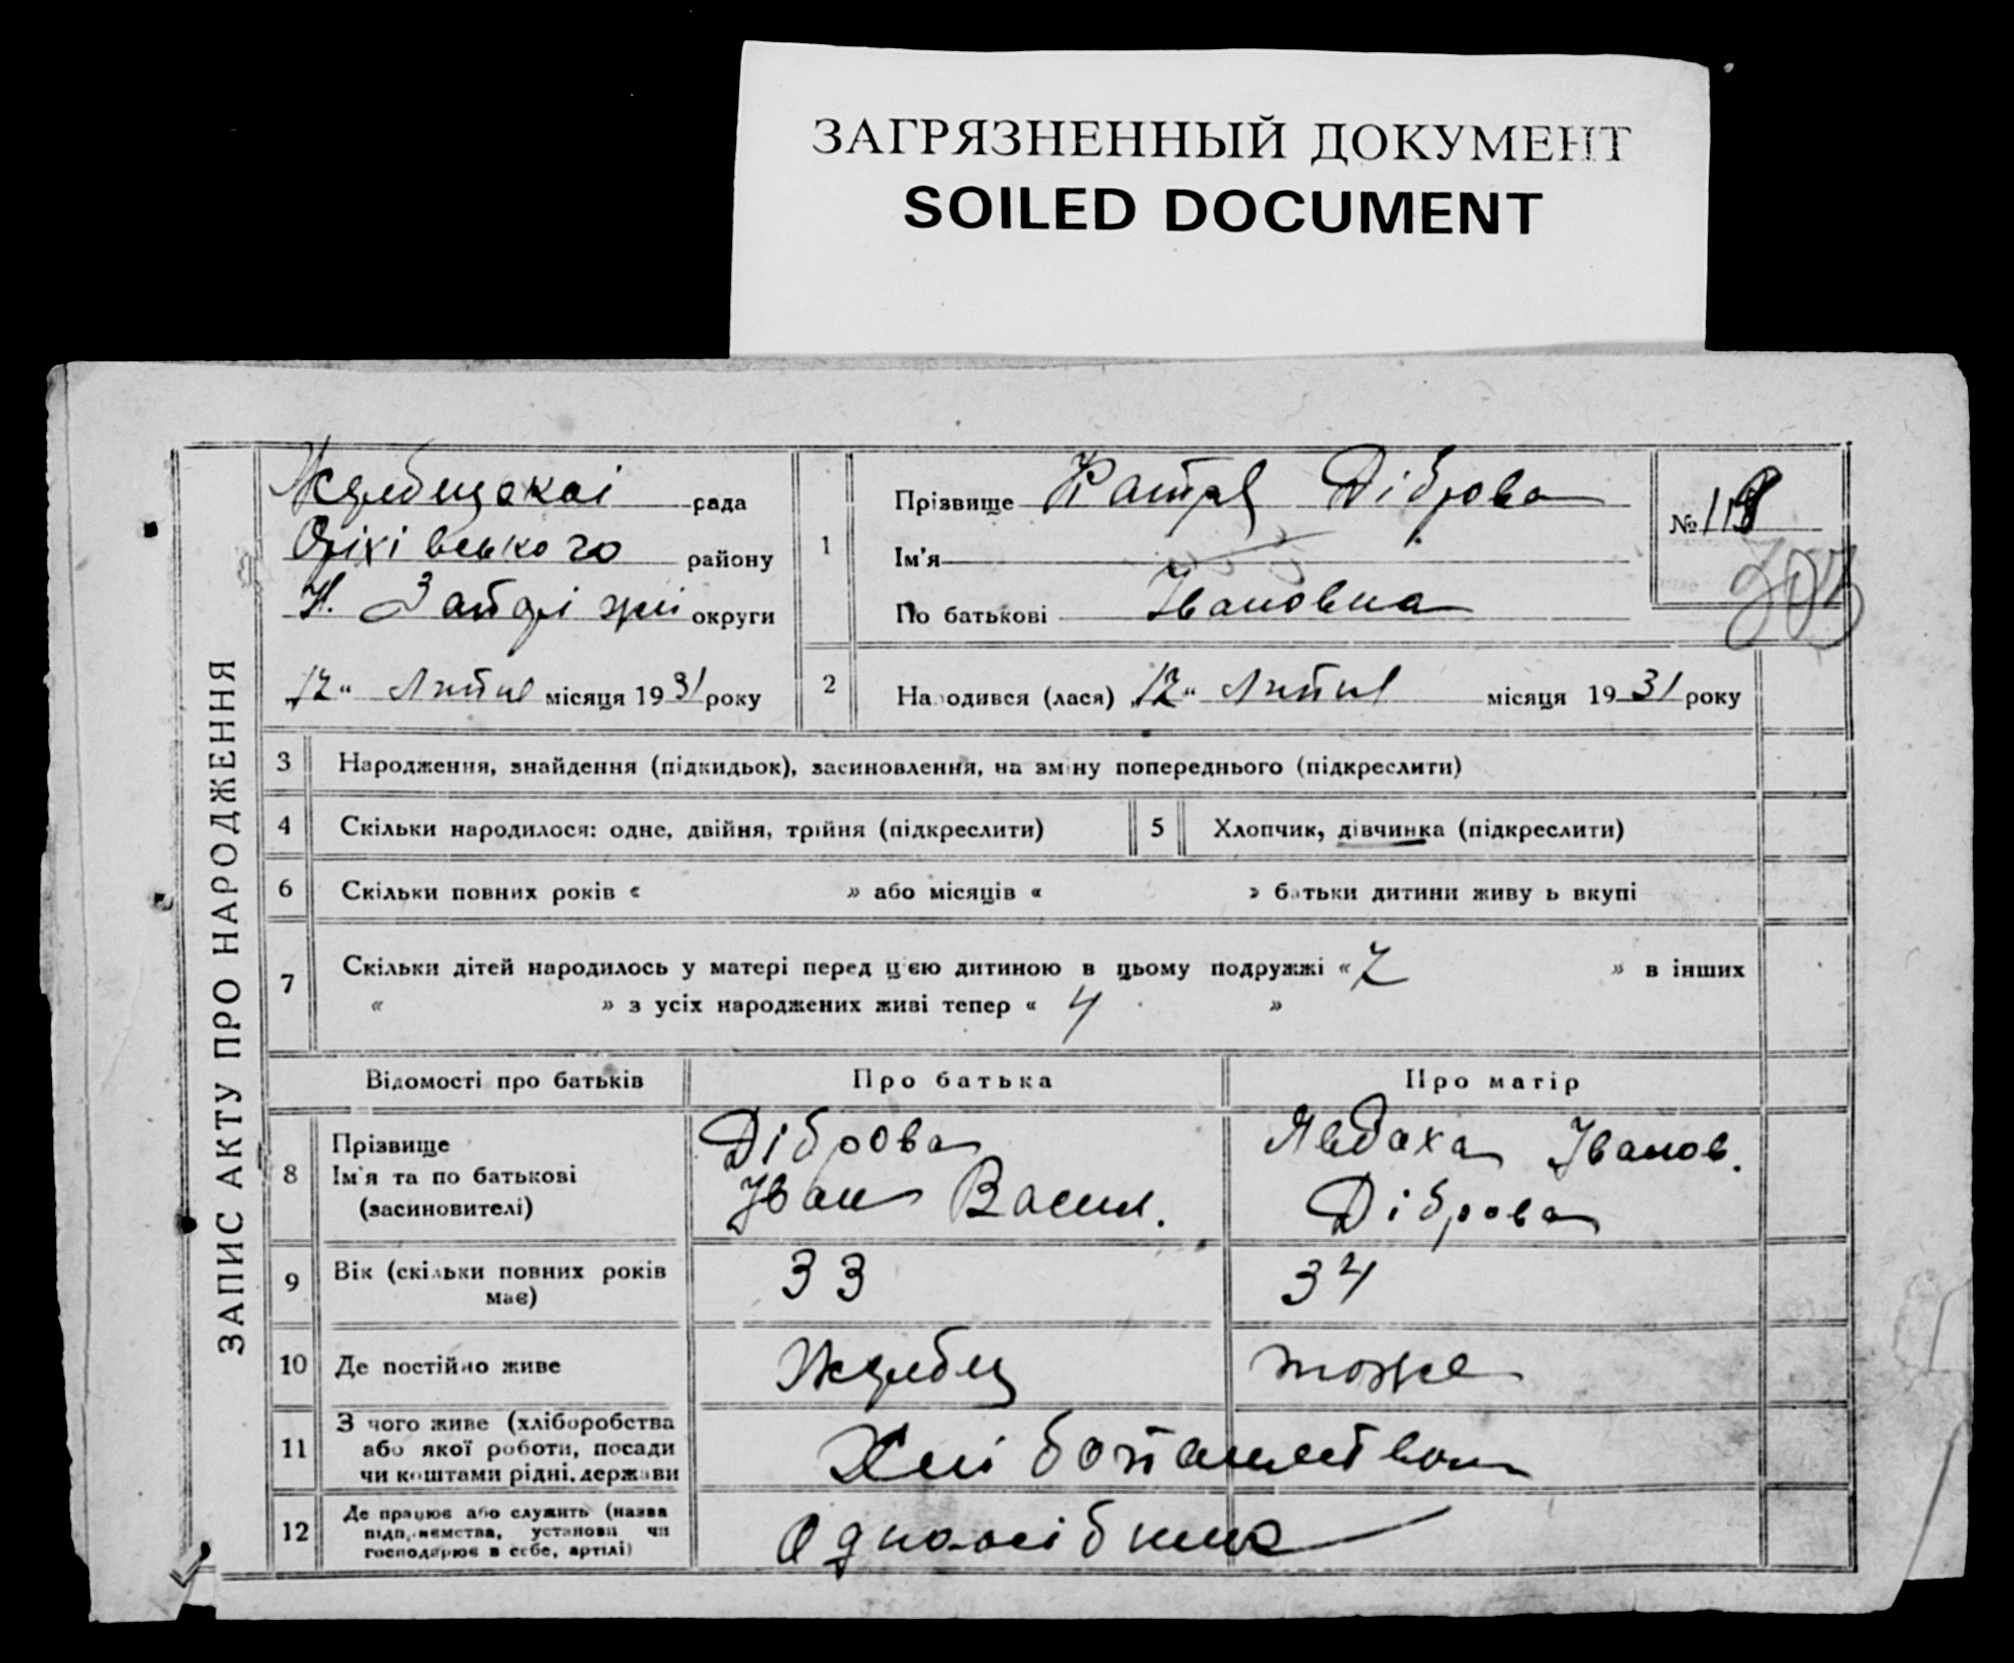 ЗАГРЯЗНЕННЫЙ ДОКУМЕНТ
SOILED DOCUMENT
ЗАПИС АКТУ ПРО НАРОДЖЕННЯ
рада
Оріхівського району
Н. округи
"12" Липня місяця 1931 року
1
Прізвище Катря Діброва
Ім'я
По батькові Івановна
№ 118
2
Народився (лася) "12" Липня місяця 1931 року
3 Народження, знайдення (підкидьок), засиновлення, на зміну попереднього (підкреслити)
4 Скільки народилося: одне, двійня, трійня (підкреслити)
5 Хлопчик, дівчинка (підкреслити)
6 Скільки повних років « » або місяців « » батьки дитини живуть вкупі
7 Скільки дітей народилось у матері перед цією дитиною в цьому подружжі « 7 » в інших
« » з усіх народжених живі тепер « 4 »
Відомості про батьків
Про батька
Про матір
8 Прізвище
Ім'я та по батькові
(засиновителі)
Діброва
Іван Васил.
Явдаха Іванов.
Діброва
9 Вік (скільки повних років
має)
33
34
10 Де постійно живе
Жеребец
тоже
11 З чого живе (хліборобства
або якої роботи, посади
чи коштами рідні, держави
Хліботашеством
12 Де працює або служить (назва
підприємства, установи чи
господарює в себе, артілі)
Одноосібник